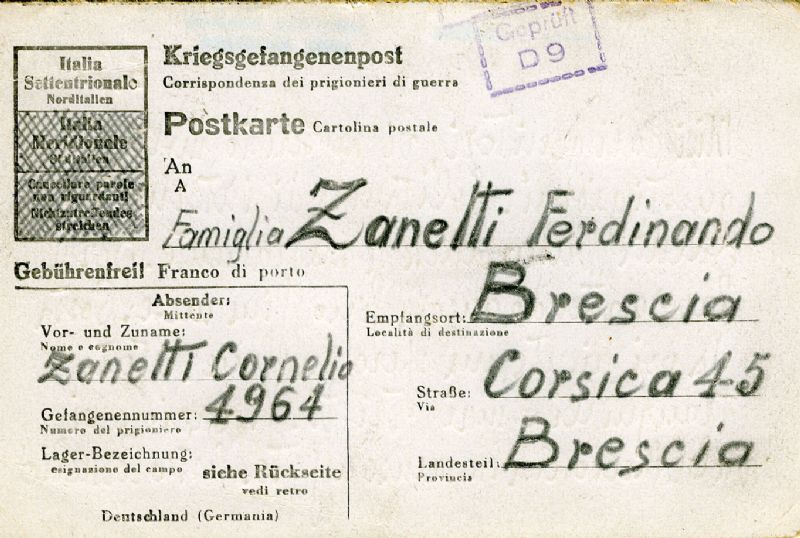 Italia
Settentrionale
Norditalien
Italia
Meridionale
Süditalien
Cancellare parole
non riguardanti
Nichtzutreffendes
streichen
Kriegsgefangenenpost
Corrispondenza dei prigionieri di guerra
Geprüft
D 9
Postkarte Cartolina postale
An
A
Famiglia Zanetti Ferdinando
Gebührenfrei! Franco di porto
Empfangsort: Brescia
Località di destinazione
Straße: Corsica 45
Via
Landesteil: Brescia
Provincia
Absender:
Mittente
Vor- und Zuname:
Nome e cognome
Zanetti Cornelio
Gefangenennummer: 4964
Numero del prigioniero
Lager-Bezeichnung:
esignazione del campo
siehe Rückseite
vedi retro
Deutschland (Germania)